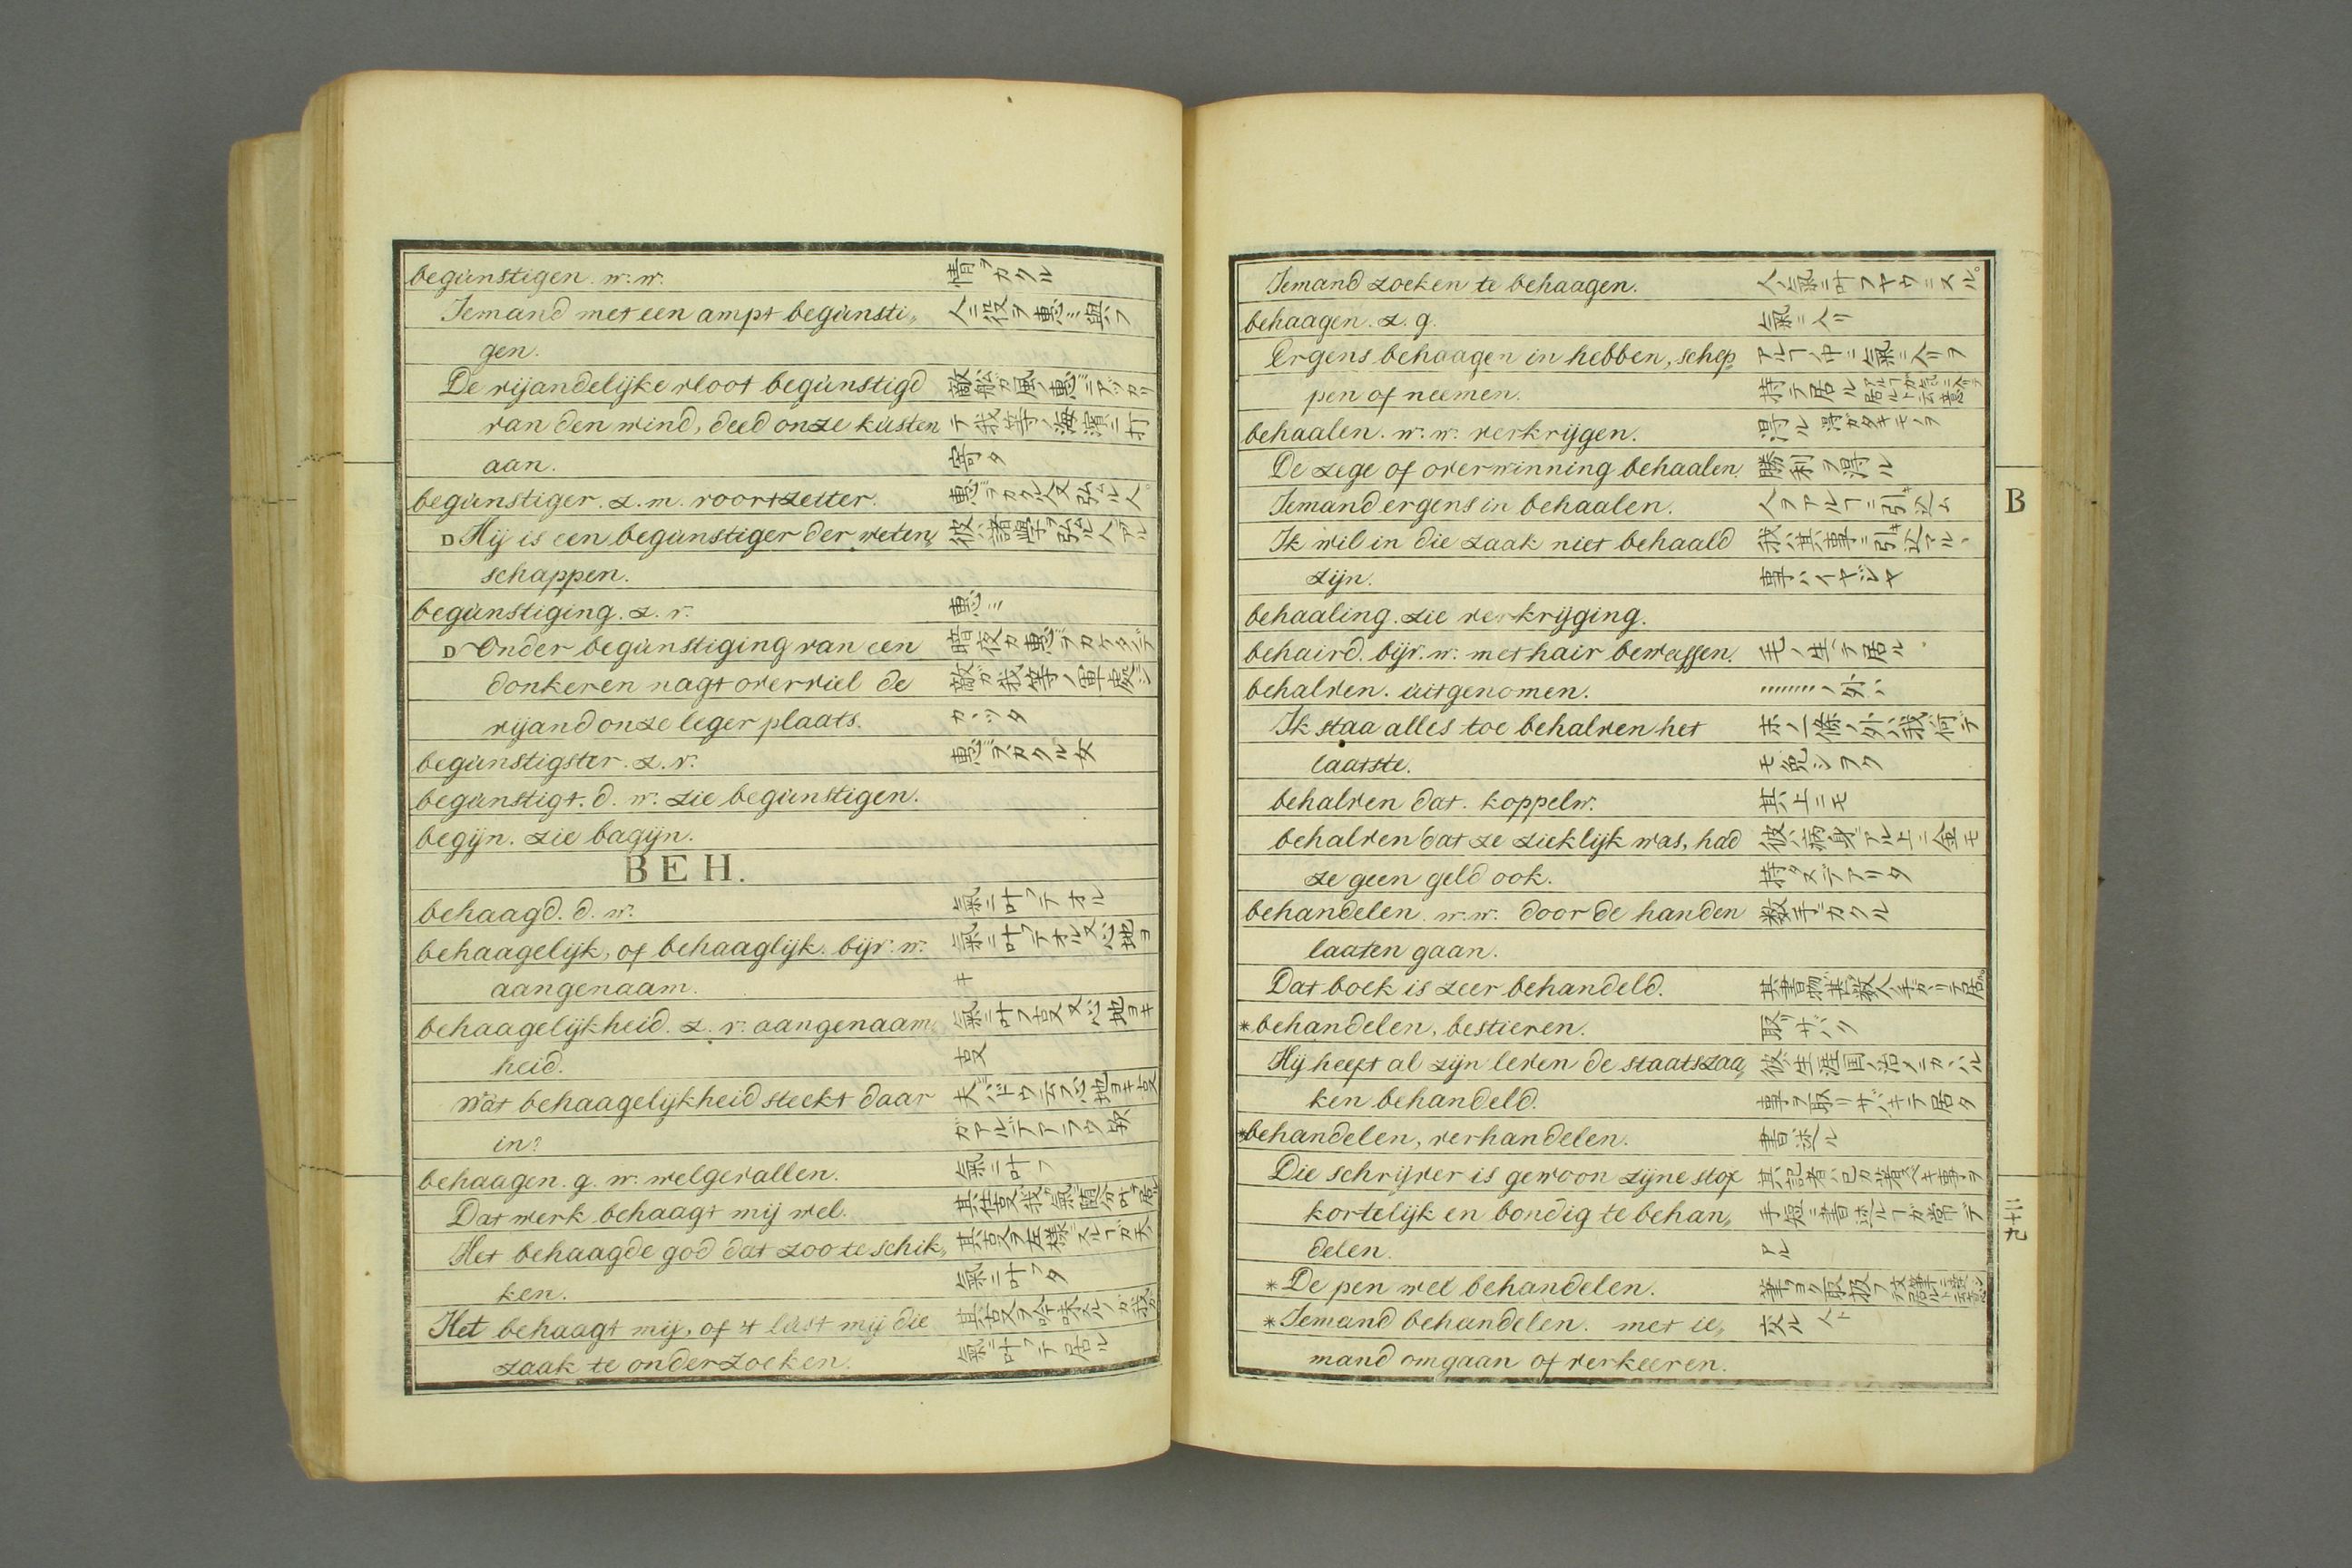 begunstigen. w. w. 情ヲカクル
Iemand met een ampt begunsti„ 人ニ役ヲ惠ミ與フ
gen.
De vijandelijke vloot begunstigd 敵船ガ風ノ惠ミニアヅカリ
van den wind, deed onze kusten テ我等ノ海濱ニ打
aan. 寄タ
begunstiger. z. m. voortzetter. 惠ヲカクル人又弘ムル人
D Hij is een begunstiger der weten„ 彼ハ諸學ヲ弘ムル人デアル
schappen.
begunstiging. z. v. 惠ミ
D Onder begunstiging van een 暗夜ガ惠ヲカケタデ
donkeren nagt overviel de 敵ガ我等ノ軍處ニ
vijand onze leger plaats. カヽツタ
begunstigster. z. v. 惠ヲカクル女
begunstigt. d. w. zie begunstigen.
begijn. zie bagijn.
BEH.
behaagd. d. w. 氣ニ叶フテオル
behaagelijk, of behaaglijk. bijv. w. 氣ニ叶フテオル又心地ヨ
aangenaam. キ
behaagelijkheid. z. v. aangenaam„ 氣ニ叶フ叓又心地ヨキ
heid. 叓
Wat behaagelijkheid steekt daar 夫ニハドウ云フ心地ヨキ叓
in? ガアルデアラウ欤
behaagen. g. w. welgevallen. 氣ニ叶フ
Dat werk behaagt mij wel. 其仕叓ハ我ガ氣ニ随分叶フテ居ル
Het behaagde god dat zoo te schik„ 其叓ヲ左様ニスルヿガ天ノ
ken. 氣ニ叶フタ
Het behaagt mij, of 't lust mij die 其叓ヲ吟味スルノガ我ガ
zaak te onderzoeken. 氣ニ叶フテ居ル
Iemand zoeken te behaagen. 人ノ氣ニ叶フヤウニスル。
behaagen. z. g. 氣ニ入リ
Ergens behaagen in hebben, schep„ アルヿノ中ニ氣ニ入リヲ
pen of neemen. 持テ居ル アルヿガ氣ニ入ツテ居ルト云意
behaalen. w. w. verkrijgen. 得ル 得ガタキモノヲ
De zege of overwinning behaalen. 勝利ヲ得ル
Iemand ergens in behaalen. 人ヲアルヿニ引キ込ム
Ik wil in die zaak niet behaald 我ハ其事ニ引キ込マルヽ
zijn. 事ハイヤジヤ
behaaling. zie verkrijging.
behaird. bijv. w. met hair bewassen. 毛ノ生テ居ル
behalven. uitgenomen. ……ノ外ハ
Ik staa alles toe behalven het 末ノ一條ノ外ハ我何デ
laatste. モ免シヲク
behalven dat. koppelw. 其上ニモ
behalven dat ze zieklijk was, had 彼ハ病身デアル上ニ金モ
ze geen geld ook. 持タズデアリタ
behandelen. w. w. door de handen 数手ニカクル
laaten gaan.
Dat boek is zeer behandeld. 其書物ハ甚数人ノ手ニカヽリテ居ル
* behandelen, bestieren. 取リサバク
Hij heeft al zijn leven de staatszaa„ 彼ハ生涯国ノ治メニカヽハル
ken behandeld. 事ヲ取リサバキテ居タ
* behandelen, verhandelen. 書述ル
Die schrijver is gewoon zijne stof 其記者ハ己ガ著スベキ事ヲ
kortelijk en bondig te behan„ 手短ニ書述ルヿガ常デ
delen. アル
* De pen wel behandelen. 筆ヲヨク取扱フ
* Iemand behandelen. met ie„ 交ル 人ト
mand omgaan of verkeeren.
B
二十九